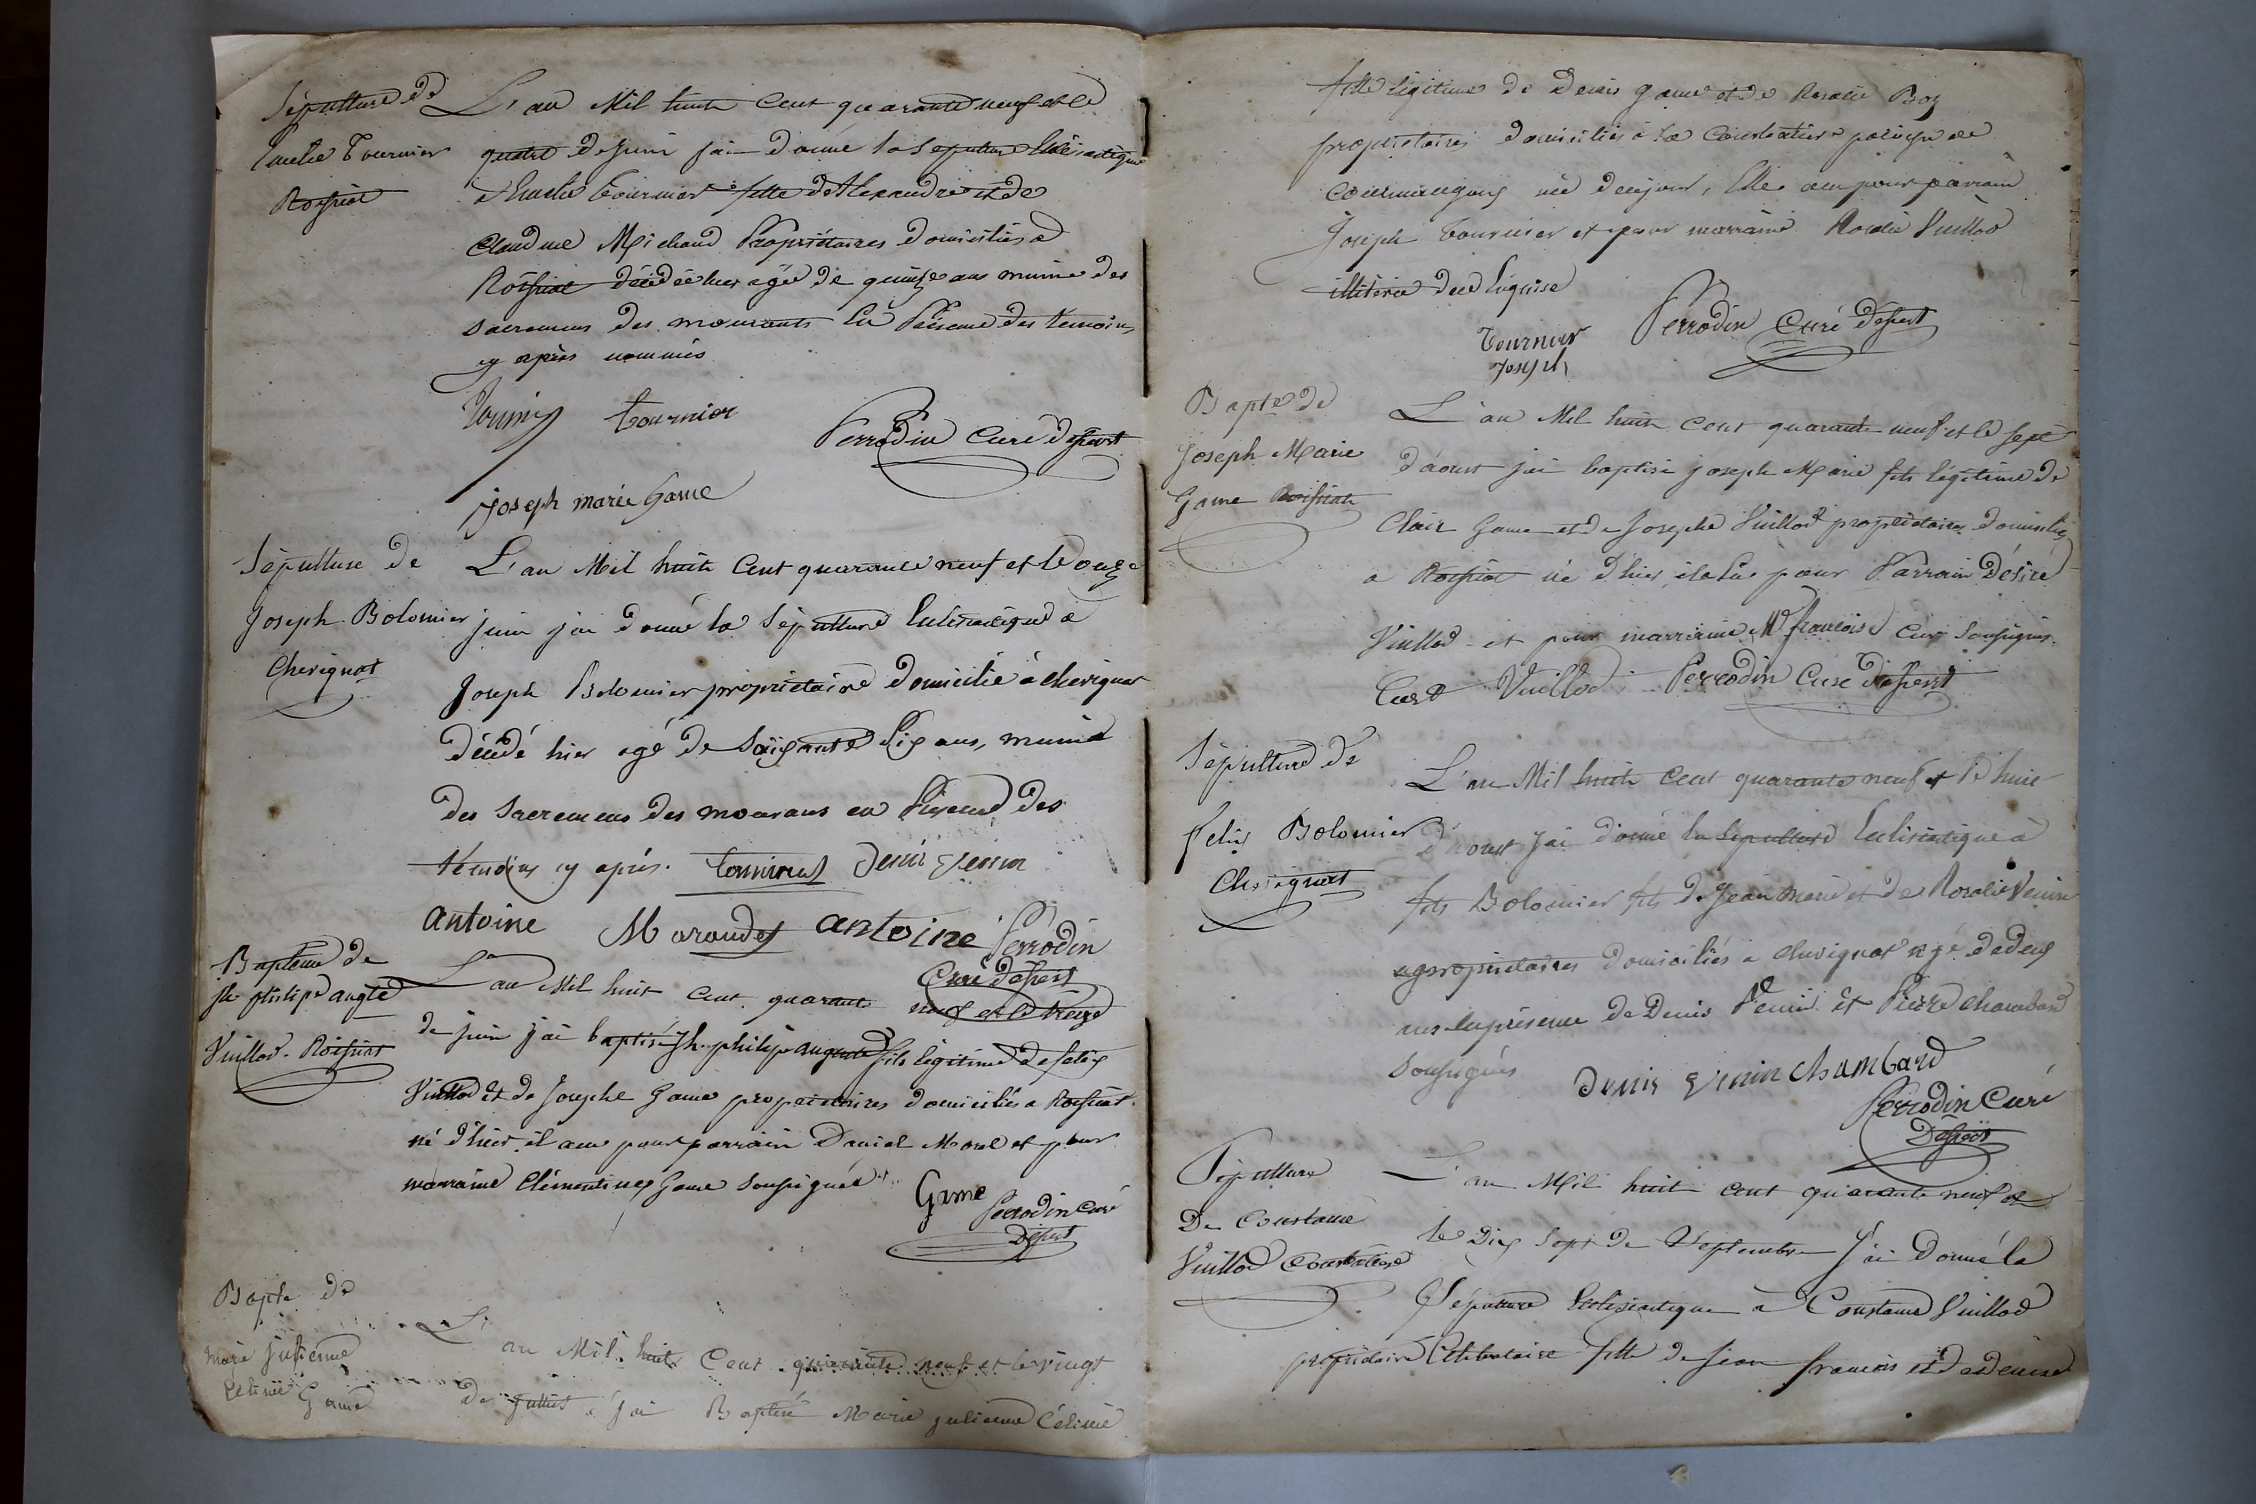 Sépulture de
Emelie Tournier
Roissiat
L'an Mil huit Cent quarante neuf et le
quatre de juin j'ai donné la sepulture Eclésiastique
a Emelie Tournier fille d'Alexandre et de
Claudine Michaud Propriétaires domiciliés a
Roissiat décédée hier agée de quinze ans munie des
sacremens des mourants En Présence des temoins
cy après nommés
Tournier
Perrodin Curé desservt
joseph marie Game
Sépulture de
Joseph Bolomier
Chevignat
L'an Mil huit Cent quarante neuf et le onze
juin j'ai donné la Sépulture Eclésiastique a
Joseph Bolomier propriétaire domicilié à chevignat
décédé hier agé de Soixante dix ans, munie
des Sacremens des mourans en Présence des
témoins cy après. Denis Venin
antoine Marandet antoine Perrodin
Curé desservt
Baptême de
Jh philipe augte
Vuillod. Roissiat
L'an Mil huit Cent quarante
neuf et le treize
de juin j'ai baptisé Jh. philipe auguste fils légitime de felix
Vuillod et de Josephe Game propriétaires domiciliés a Roissiat
né d'hier il a eu pour parrain Daniel Morel et pour
marraine Clémentine Game soussignés
Game
Perrodin Curé
Desservt
Bapte de
marie julienne
Célinie Game
L'an Mil huit Cent quarante neuf et le vingt
de juillet j'ai Baptisé Marie julienne Célinie
fille légitime de Denis game et de Rosalie Boz
propriétaires domiciliés à la Courbatière paroisse de
Courmangoux née de ce jour, Elle a eu pour parrain
Joseph Tournier et pour marraine Rosalie Vuillod
illitérée de ce Requise
Tournier
Joseph
Perrodin Curé desservt
Bapte de
Joseph Marie
Game Roissiat
L'an Mil huit Cent quarante neuf et le sept
d'aoust j'ai baptisé joseph Marie fils légitime de
Clair Game et de Josephe Vuillod propriétaires domiciliés
a Roissiat né d'hier, il a eu pour Parrain Désiré
Vuillod et pour marraine Mie françoise Curt Soussignés.
Curt Vuillod Perrodin Curé desservt
Sépulture de
Felix Bolomier
Chevignat
L'an Mil huit Cent quarante neuf et le huit
d'aoust j'ai donné la Sepulture Eclésiastique à
felix Bolomier fils de Jean marie et de Rosalie Venin
propriétaires domiciliés a chevignat agé de deux
ans en présence de Denis Venin et Pierre chambard
soussignés
Denis Venin Chambard
Perrodin Curé
Desservt
Sépulture
De Constance
Vuillod Courbatière
L'an Mil huit cent quarante neuf et
le dix sept de Septembre j'ai donné la
Sépulture Ecclésiastique a Constance Vuillod
propriétaire Célibataire fille de jean françois et de denise